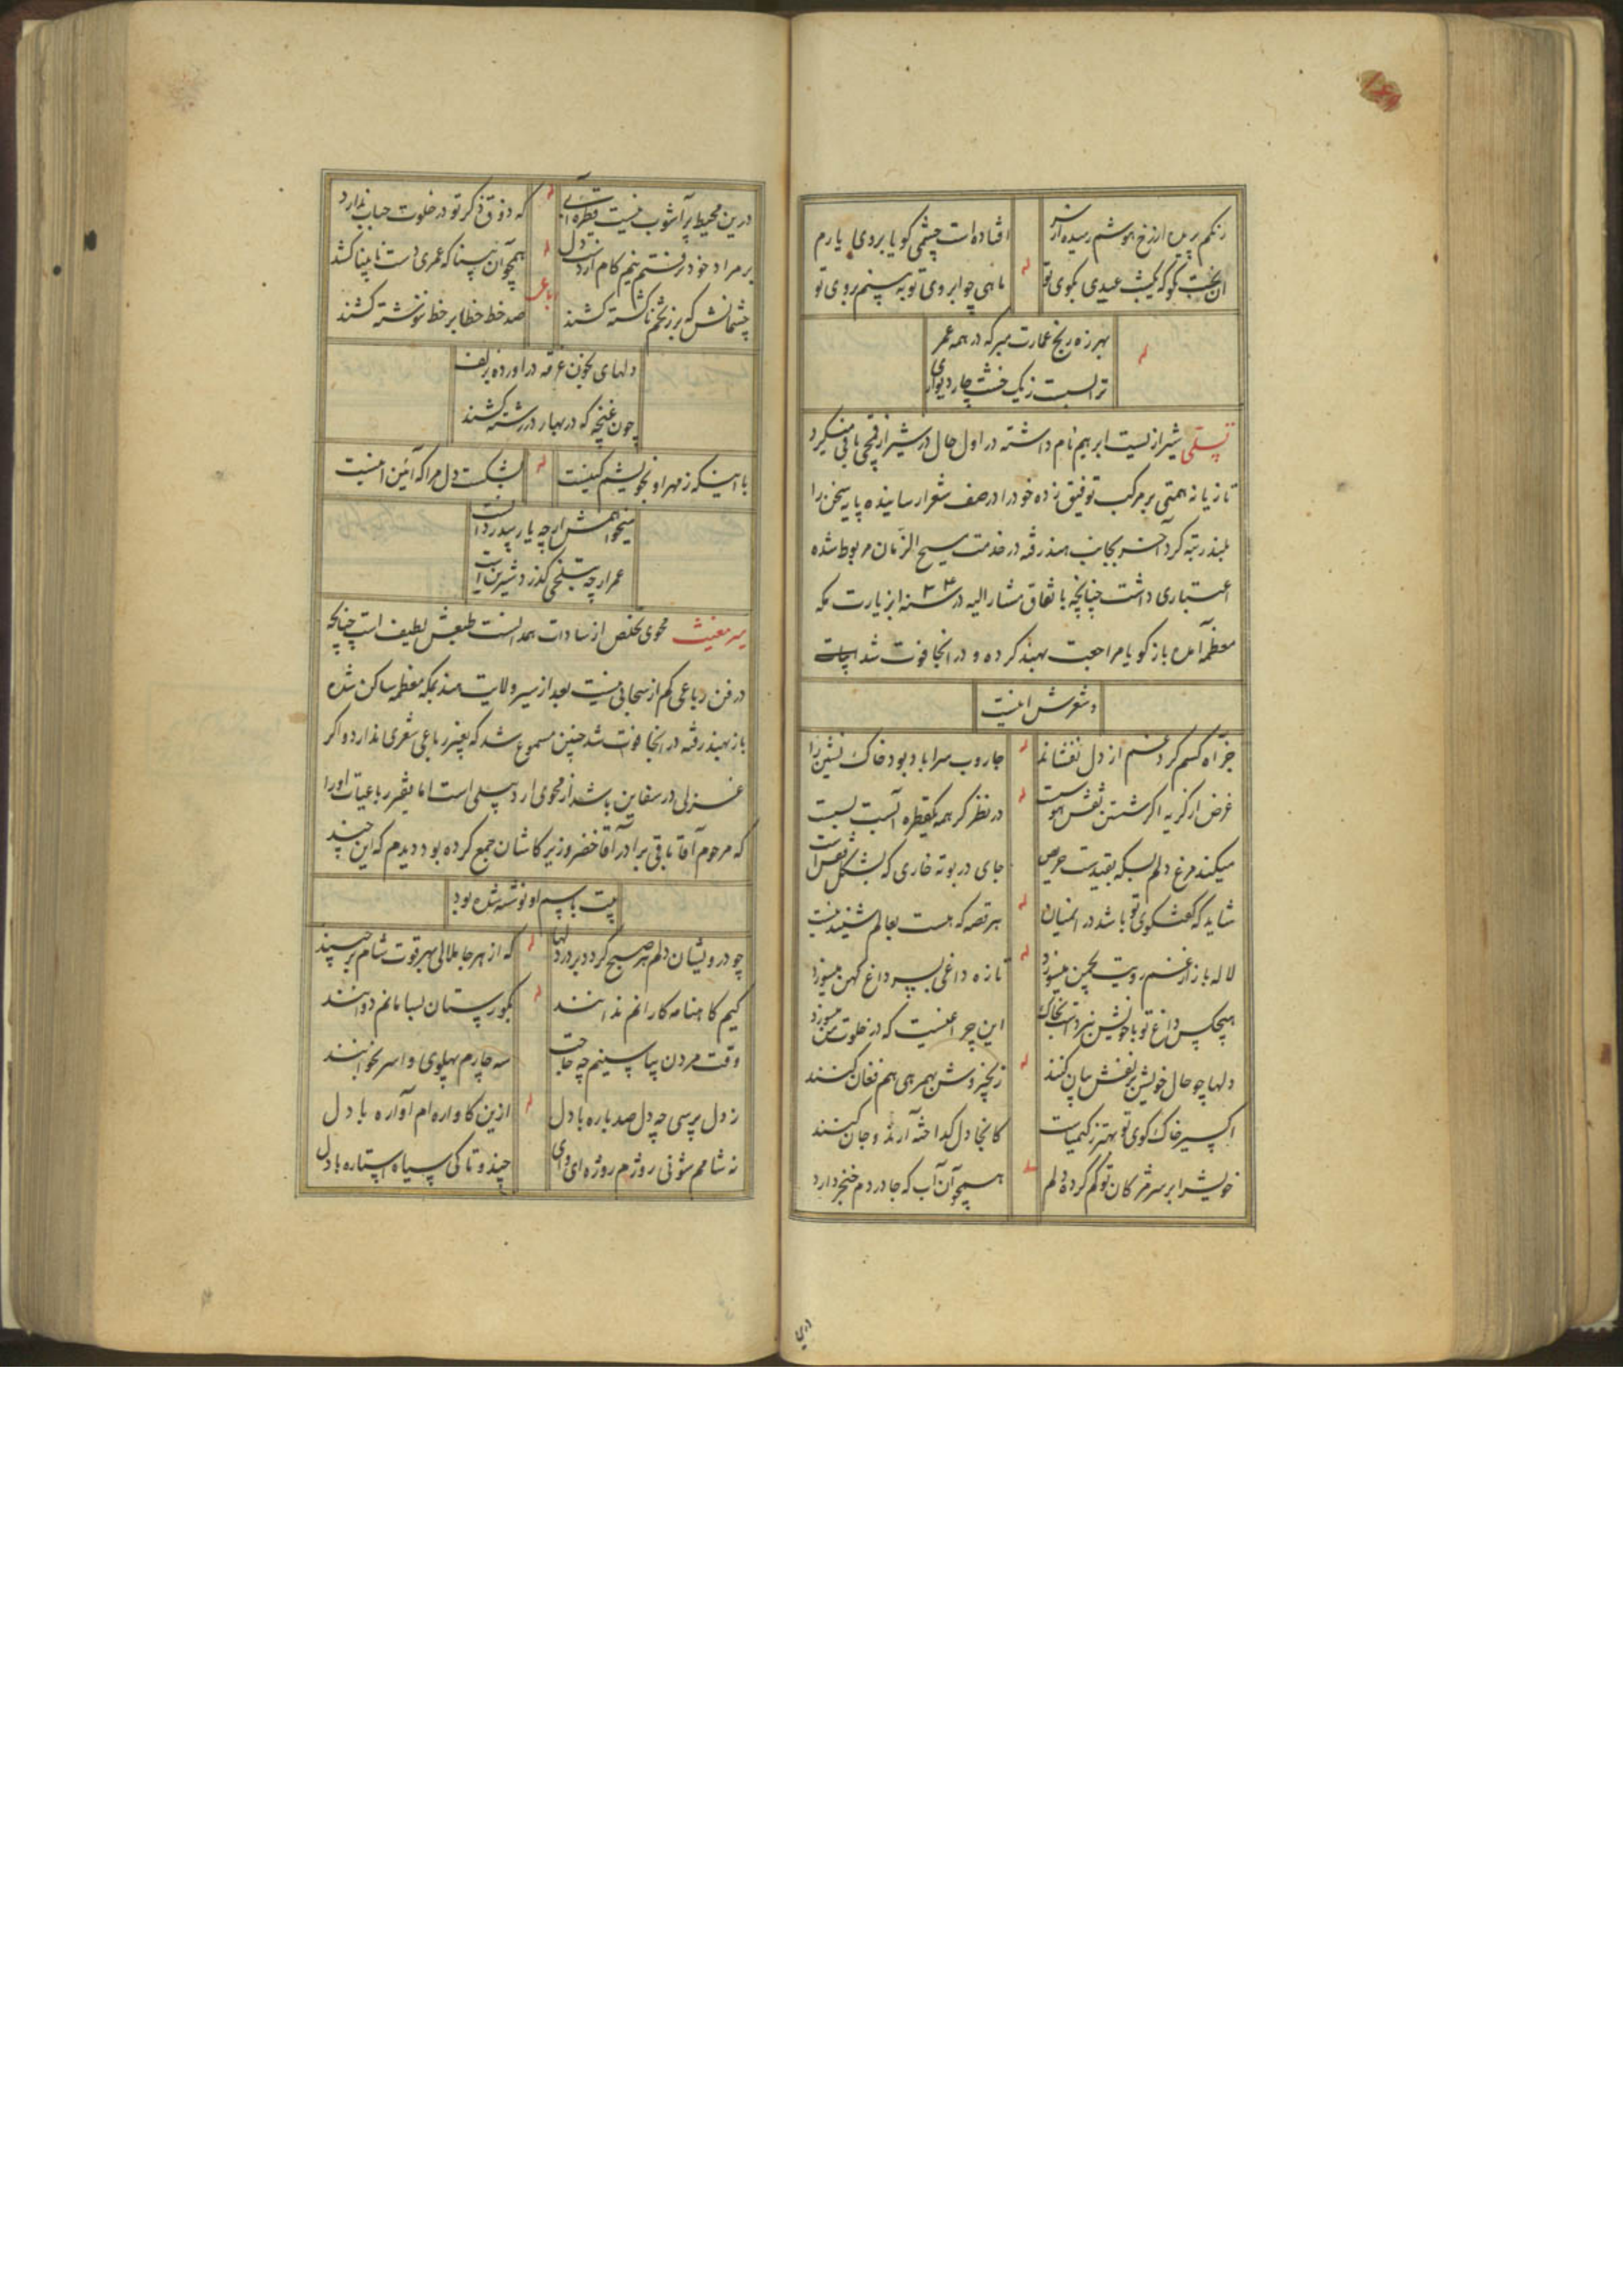 رنگم پریده از رخ هوشم رمیده از سر
افتاده است چشمی گویا بروی یارم
له
آن بخت کو که یکشب عیدی بکوی تو
ماهی چو ابروی تو به بینم بروی تو
له
بهرزه رنج عمارت مبر که در همه عمر
ترا بست ز یک خشت چار دیواری
تسلی شیرازیست ابرهیم نام داشته در اول حال در شیراز قیچی بافی میکرد
تازیانه همتی بر مرکب توفیق زده خود را در صف شعرا رسانیده پایه سخن را
بلند رتبه کرد آخر بجانب هند رفته در خدمت مسیح الزمان مربوط شده
اعتباری داشت چنانچه باتفاق مشار الیه در سنه از زیارت مکه
معظمه آمده باز گویا مراجعت بهند کرده و در انجا فوت شد
و شعرش اینست
جز آه کسم گرد غم از دل نفشاند
جاروب سراباد بود خاک نشین را
له
غرض از گریه اگر شستن نقش هوست
در نظر گر همه یکقطره آبست بست
له
میکند مرغ دلم بسکه بقیدست حریص
جای در بوته خاری که بشکل قفس است
شاید که گفتگوی تو باشد در انمیان
هر قصه که هست بعالم شنیدنیست
له
لاله باز از غم رویت بچمن میسوزد
تازه داغی بسر داغ کهن میسوزد
له
هیچکس داغ تو با خویش نبردست بخاک
این چراغیست که در خلوت من میسوزد
دلها چو حال خویش بزلفش بیان کنند
زنجیر وش بهمرهی هم فغان کنند
له
اکسیر خاک کوی تو بهتر ز کیمیاست
کانجا دل گداخته آرند و جان کنند
خویش را بر سر مژگان تو گم کرده دلم
همچو آن آب که جا در دم خنجر دارد
درین
درین محیط پر آشوب نیست قطره آبی
که ذوق ذکر تو در خلوت حباب ندارد
له
بر مراد خود نرفتم نیم گام از دست دل
همچو آن بینا که عمری دست نابینا کشد
له
رباعی
چشمانش که برزخم ناگشته کشند
صد خط خطا بر خط ننوشته کشند
دلهای بخون غرقه در آورده بزلف
چون غنچه که در بهار در رشته کشند
با اینکه ز مهر او بخویشم کینست
بشکست دل مرا که آئین اینست
له
میخواهمش ارچه یار بیدردانست
عمر ارچه بتلخی گذرد شیرین است
میر مغیث محوی تخلص از سادات همدانست طبعش لطیف است چنانچه
در فن رباعی کم از سحابی نیست بعد از سیر ولایت هند بمکه معظمه ساکن شده
باز بهند رفته در انجا فوت شد چنین مسموع شد که بغیر رباعی شعری ندارد و اگر
غزلی در سفاین باشد از محوی اردبیلی است اما بفقیر رباعیات او را
که مرحوم آقا باقی برادر آقا خضر وزیر کاشان جمع کرده بود دیدم که این چند
بیت باسم او نوشته شده بود
چو درویشان دلم هر صبح گردد بر در دلها
که از هر جا ملالی بهر قوت شام برچیند
له
کیم کاهنامه کارانم ندانند
بگورستان بسامانم دوانند
له
وقت مردن بیا بینیم چه حاجت
سه چارم پهلوی واسر بخوابند
ز دل پرسی چه دل صد باره با دل
ازین کاواره ام آواره با دل
له
نه شامم شو نی روژم روژه ای وای
چند و تا کی سیاه استاره با دل